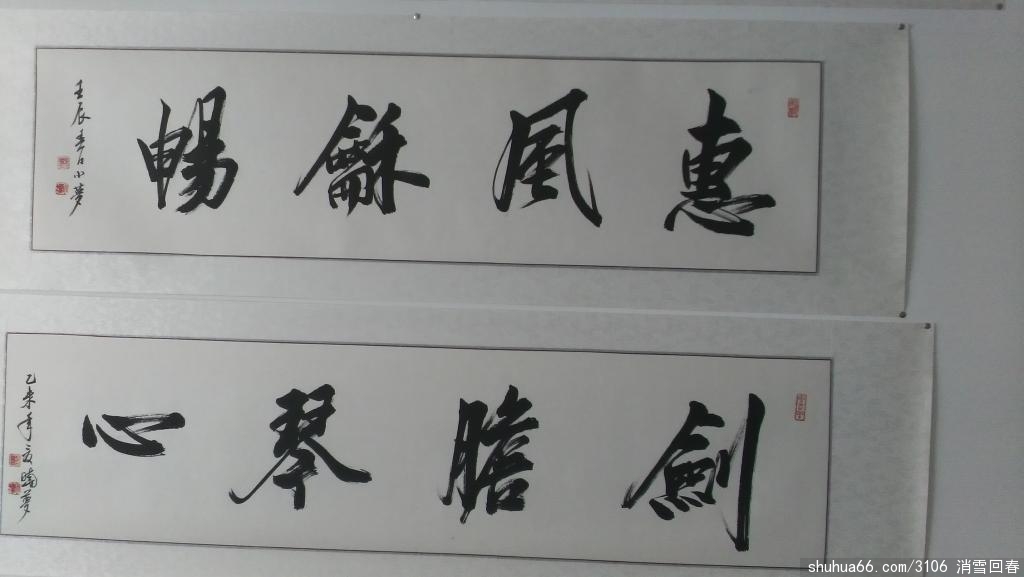 惠風龢暢
壬辰春日小夢
劍膽琴心
乙未年夏曉夢
shuhua66.com/3106 消雪回春